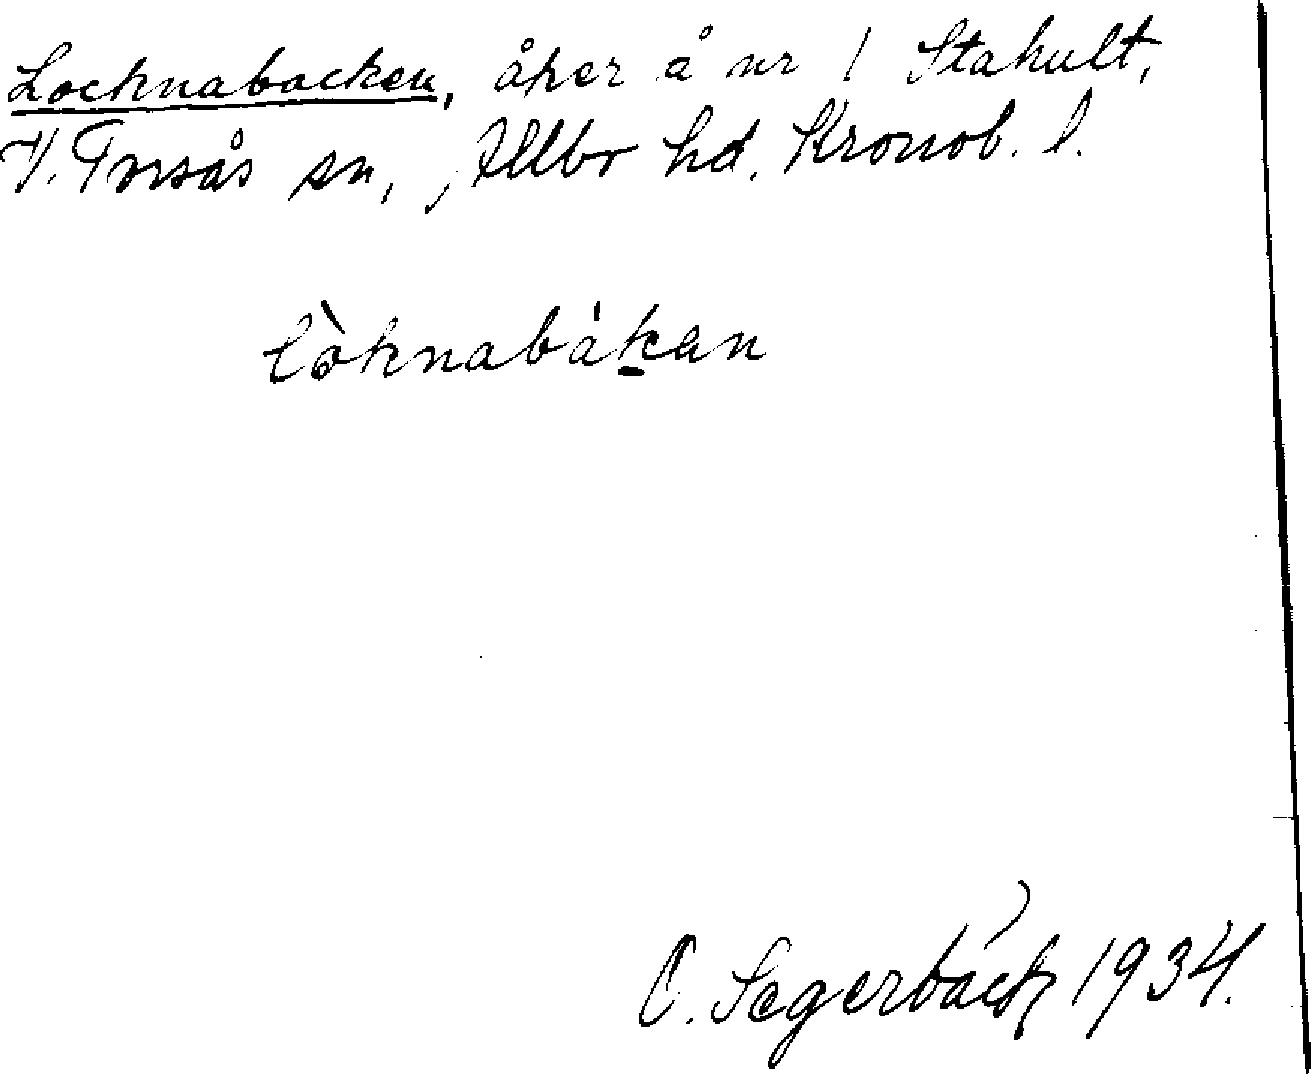 Locknabacken, åker å nr 1 Stakult,
V. Torsås sn, Allbo hd. Kronob. l.
lòknabákan
O. Segerbäck 1934.